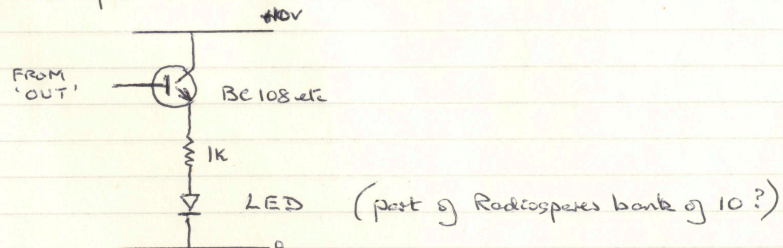 FROM
'OUT'
BC 108 etc
1K
LED (part of Radiospares bank of 10?)
0